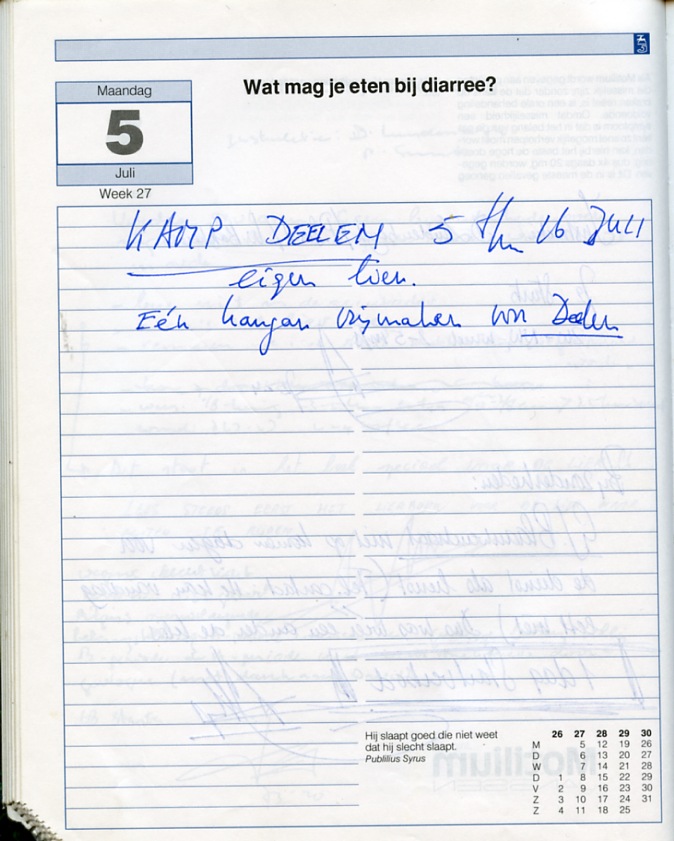 Wat mag je eten bij diarree?
Maandag
5
Juli
Week 27
KAMP DEELEN 5 t/m 16 JULI
eigen
Eén hangar vrijmaken von Deelen
Hij slaapt goed die niet weet
dat hij slecht slaapt.
Publilius Syrus
26 27 28 29 30
M 5 12 19 26
D 6 13 20 27
W 7 14 21 28
D 1 8 15 22 29
V 2 9 16 23 30
Z 3 10 17 24 31
Z 4 11 18 25